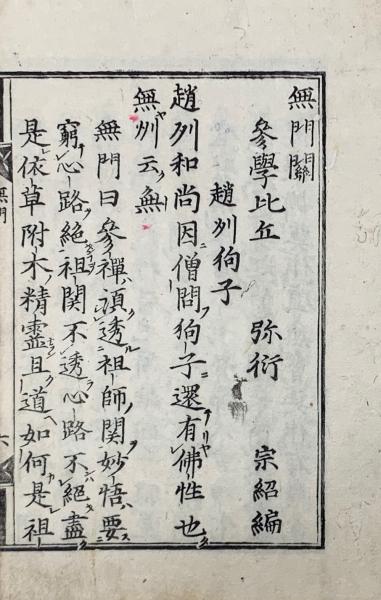 無門關
參學比丘 弥衍 宗紹編
趙州狗子
趙州和尚因僧問狗子還有佛性也
無州云無
無門曰參禪須透祖師關妙悟要
窮心路絕祖關不透心路不絕盡
是依草附木精靈且道如何是祖
無門
六